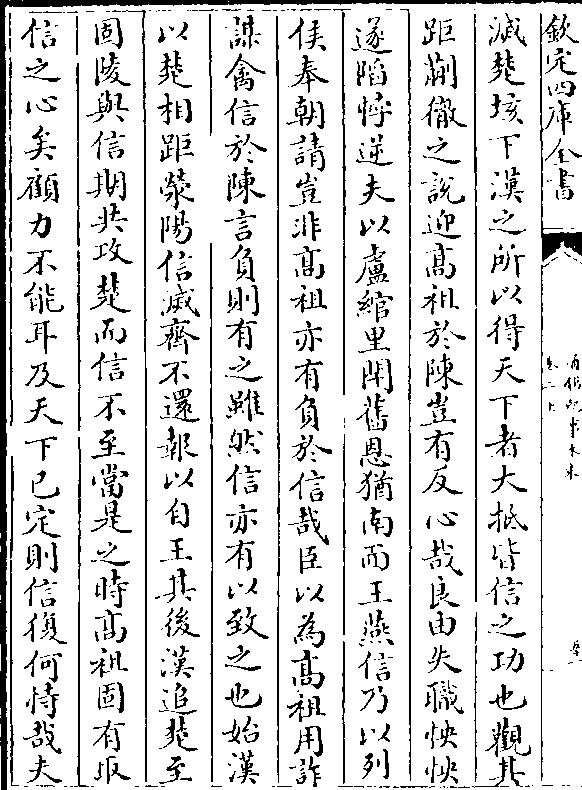 欽定四庫全書
滅楚垓下漢之所以得天下者大抵皆信之功也觀其
距蒯徹之說迎髙祖於陳豈有反心哉良由失職怏怏
遂陷悖逆夫以盧綰里閈舊恩猶南面王燕信乃以列
侯奉朝請豈非髙祖亦有負於信哉臣以為髙祖用詐
謀禽信於陳言負則有之雖然信亦有以致之也始漢
以楚相距滎陽信滅齊不還報以自王其後漢追楚至
固陵與信期共攻楚而信不至當是之時髙祖固有取
信之心矣顧力不能耳及天下已定則信復何恃哉夫